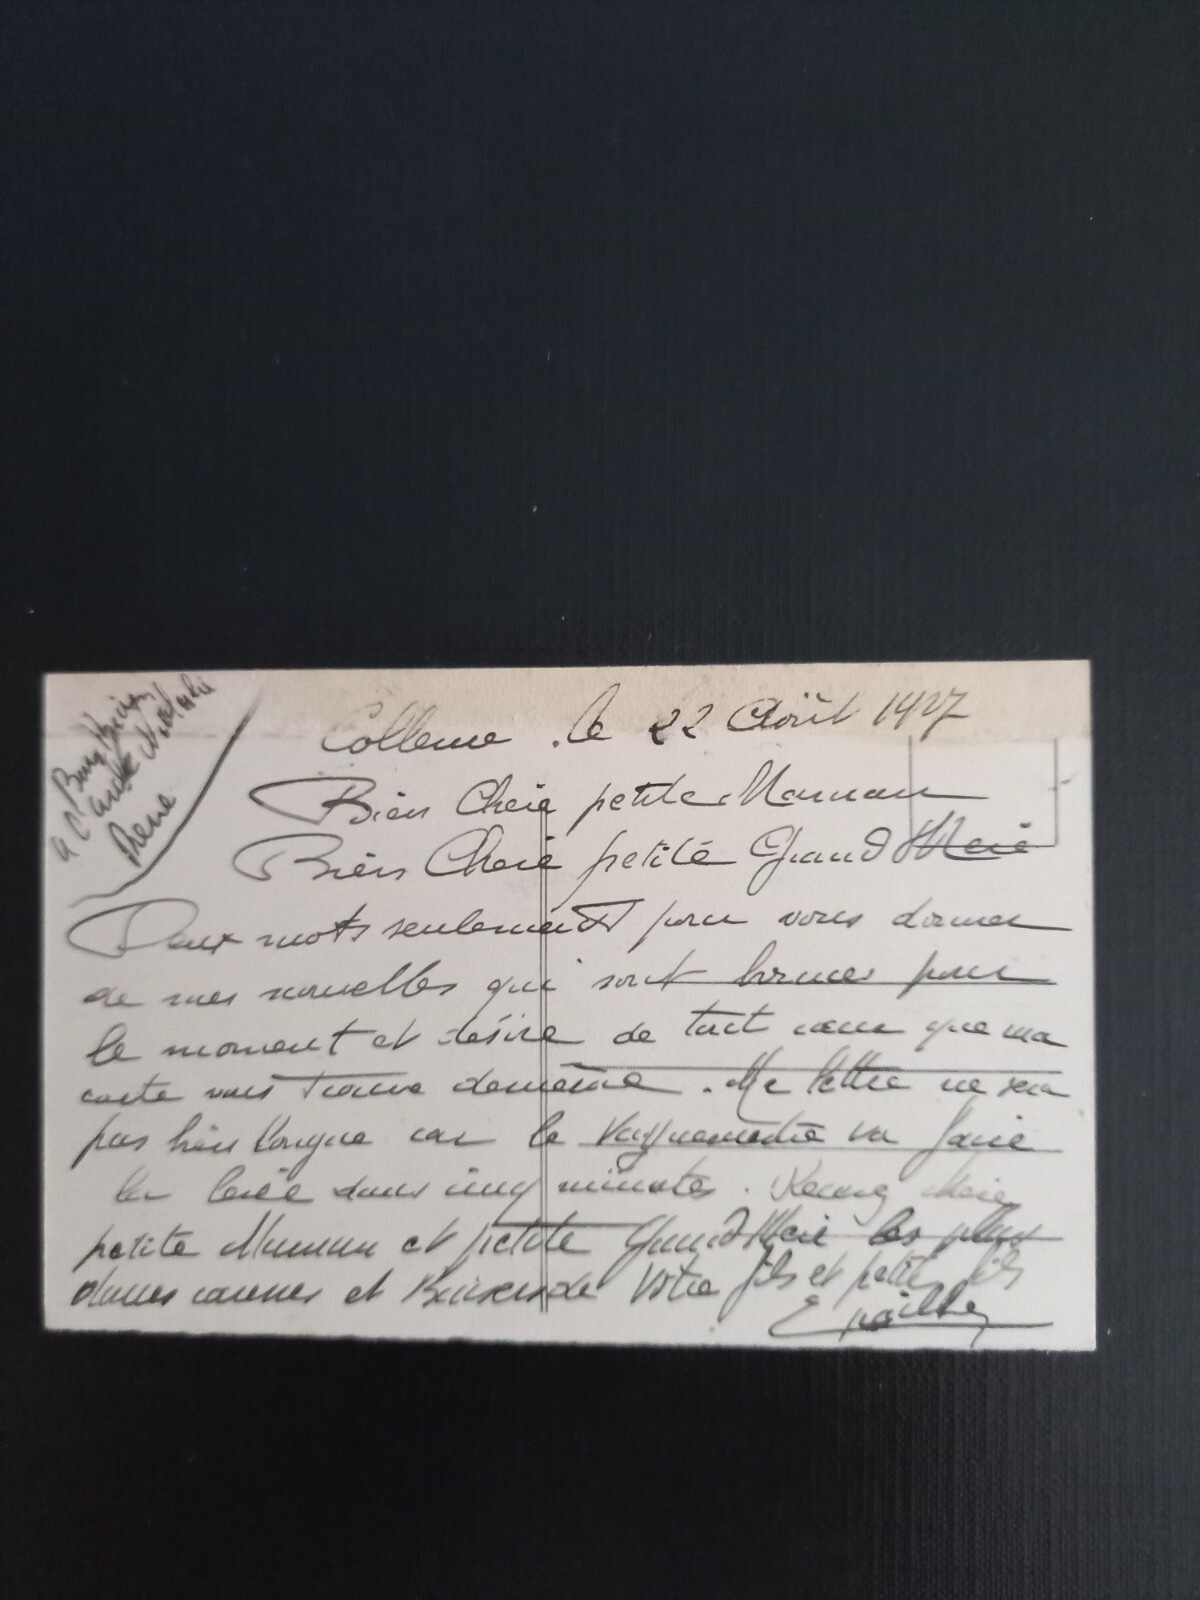 le 22 Août 1927
Bien Cheie petite Maman
Bien Cheie petite Grand Meie
Deux mots seulement pour vous donner
de mes nouvelles qui sont bonnes pour
le moment et désire de tout cœur que ma
carte vous trouve demême. Ma lettre ne sera
pas bien longue car le Vaguemestre va faire
la levée dans cinq minutes. Recevez
petite Maman et petite Grand Meie les plus
doux et Baisers de Votre fils et petits fils